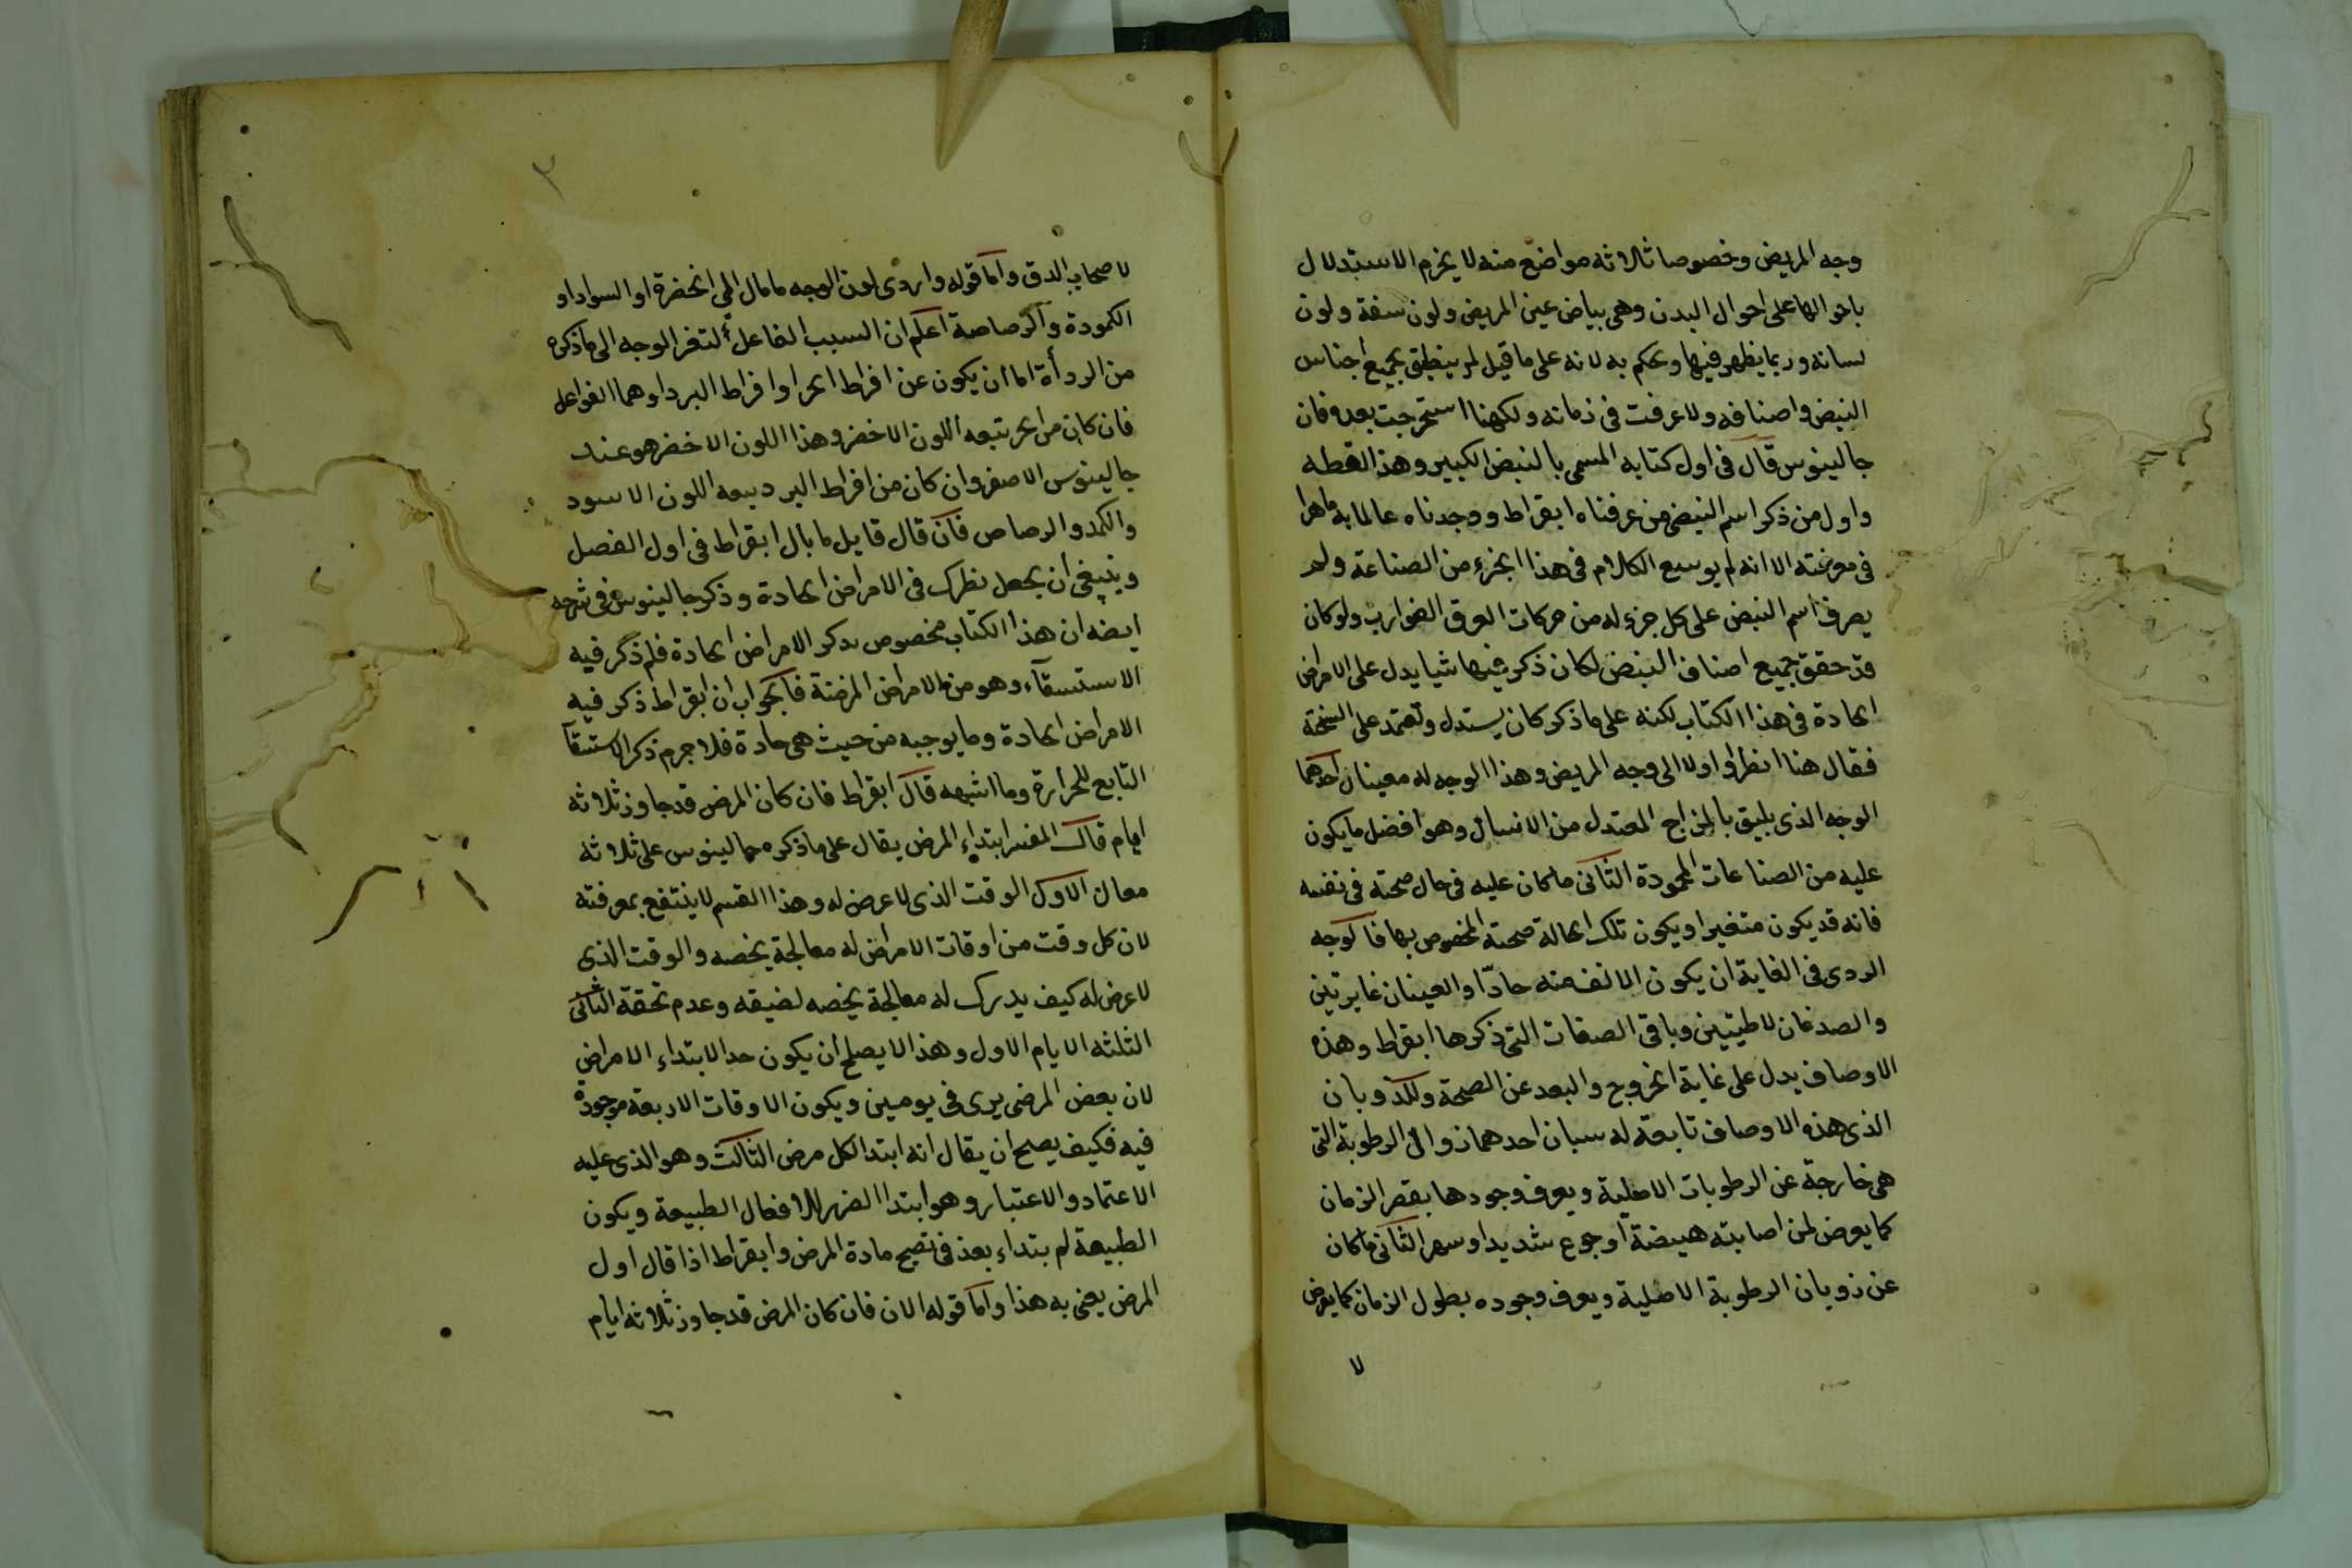 وجه المريض وخصوصا ثالاثه مواضع منه لا يخرم الاستدلال
باحوالها على احوال البدن وهى بياض عين المريض ولون شفة ولون
لسانه وربما يظهر فيها ويحكم به لانه على ما قيل لم ينطق بجميع اجناس
النبض واصنافه ولا عرفت فى زمانه ولكنها استخرجت بعده فان
جالينوس قال فى اول كتابه المسمى بالنبض الكبير وهذا لفظه
واول من ذكر اسم النبض من عرفناه ابقراط ووجدناه عالما به ماهرا
فى معرفته الا انه لم يوسع الكلام فى هذا الجزء من الصناعة ولم
يصرف اسم النبض على كل جزء له من حركات العرق الضوارب ولو كان
قد حقق جميع اصناف النبض لكان ذكر فيها شيا يدل على الامراض
الحادة فى هذا الكتاب لكنه على ما ذكر كان يستدل ويعتمد على السحنة
فقال هنا انظر اولا الى وجه المريض وهذا الوجه له معينان احدهما
الوجه الذى يليق بالمزاج المعتدل من الانسان وهو افضل ما يكون
عليه من الصناعات المحمودة الثانى ما كان عليه فى حال صحته فى نفسه
فانه قد يكون متغيرا ويكون تلك الحالة صحته المخصوص بها فالوجه
الردى فى الغاية ان يكون الانف منه حادّا والعينان غايرتين
والصدغان لاطيتين وباقى الصفات التى ذكرها ابقراط وهذه
الاوصاف يدل على غاية الخروج والبعد عن الصحة وللذوبان
الذى هذه الاوصاف تابعة له سببان احدهما زوال الرطوبة التى
هى خارجة عن الرطوبات الاصلية ويعرف وجودها بقصر الزمان
كما يعرض لمن اصابته هيضة او جوع شديد او سهر الثانى ما كان
عن ذوبان الرطوبة الاصلية ويعرف وجوده بطول الزمان كما يعرض
لا
٣
لاصحاب الدق واما قوله واردى لون الوجه ما مال الى الخضرة او السواد او
الكمودة والرصاصة اعلم ان السبب الفاعل لتغر الوجه الى ما ذكره
من الردأة اما ان يكون عن افراط الحر او افراط البرد او هما الفواعل
فان كان من الحر يتبعه اللون الاخضر وهذا اللون الاخضر هو عند
جالينوس الاصفر وان كان من افراط البرد يتبعه اللون الاسود
والكمد والرصاص فان قال قايل ما بال ابقراط فى اول الفصل
وينبغى ان يجعل نظرك فى الامراض الحادة وذكر جالينوس فى شرحه
ايضه ان هذا الكتاب مخصوص بذكر الامراض الحادة فلم ذكر فيه
الاستسقآء وهو من الامراض المزمنة فالجواب ان ابقراط ذكر فيه
الامراض الحادة وما يوجبه من حيث هى حادة فلا جرم ذكر الاستسقآ
التابع للحرارة وما اشبهه قال ابقراط فان كان المرض قد جاوز ثلاثه
ايام قال المفسر ابتداء المرض يقال على ما ذكره جالينوس على ثلاثه
معان الاول الوقت الذى لا عرض له وهذا القسم لا ينتفع بمعرفته
لان كل وقت من اوقات الامراض له معالجة يخصه والوقت الذى
لا عرض له كيف يدرك له معالجة يخصه لضيقه وعدم تحققه الثانى
الثلثه الايام الاول وهذا لا يصلح ان يكون حد الابتداء الامراض
لان بعض المرضى يرى فى يومين ويكون الاوقات الاربعة موجودة
فيه فكيف يصح ان يقال انه ابتدا لكل مرض الثالث وهو الذى عليه
الاعتماد والاعتبار وهو ابتدا الضرر لافعال الطبيعة ويكون
الطبيعة لم بتداء بعد فى نضج مادة المرض وابقراط اذا قال اول
المرض يعنى به هذا واما قوله الان فان كان المرض قد جاوز ثلاثه ايام